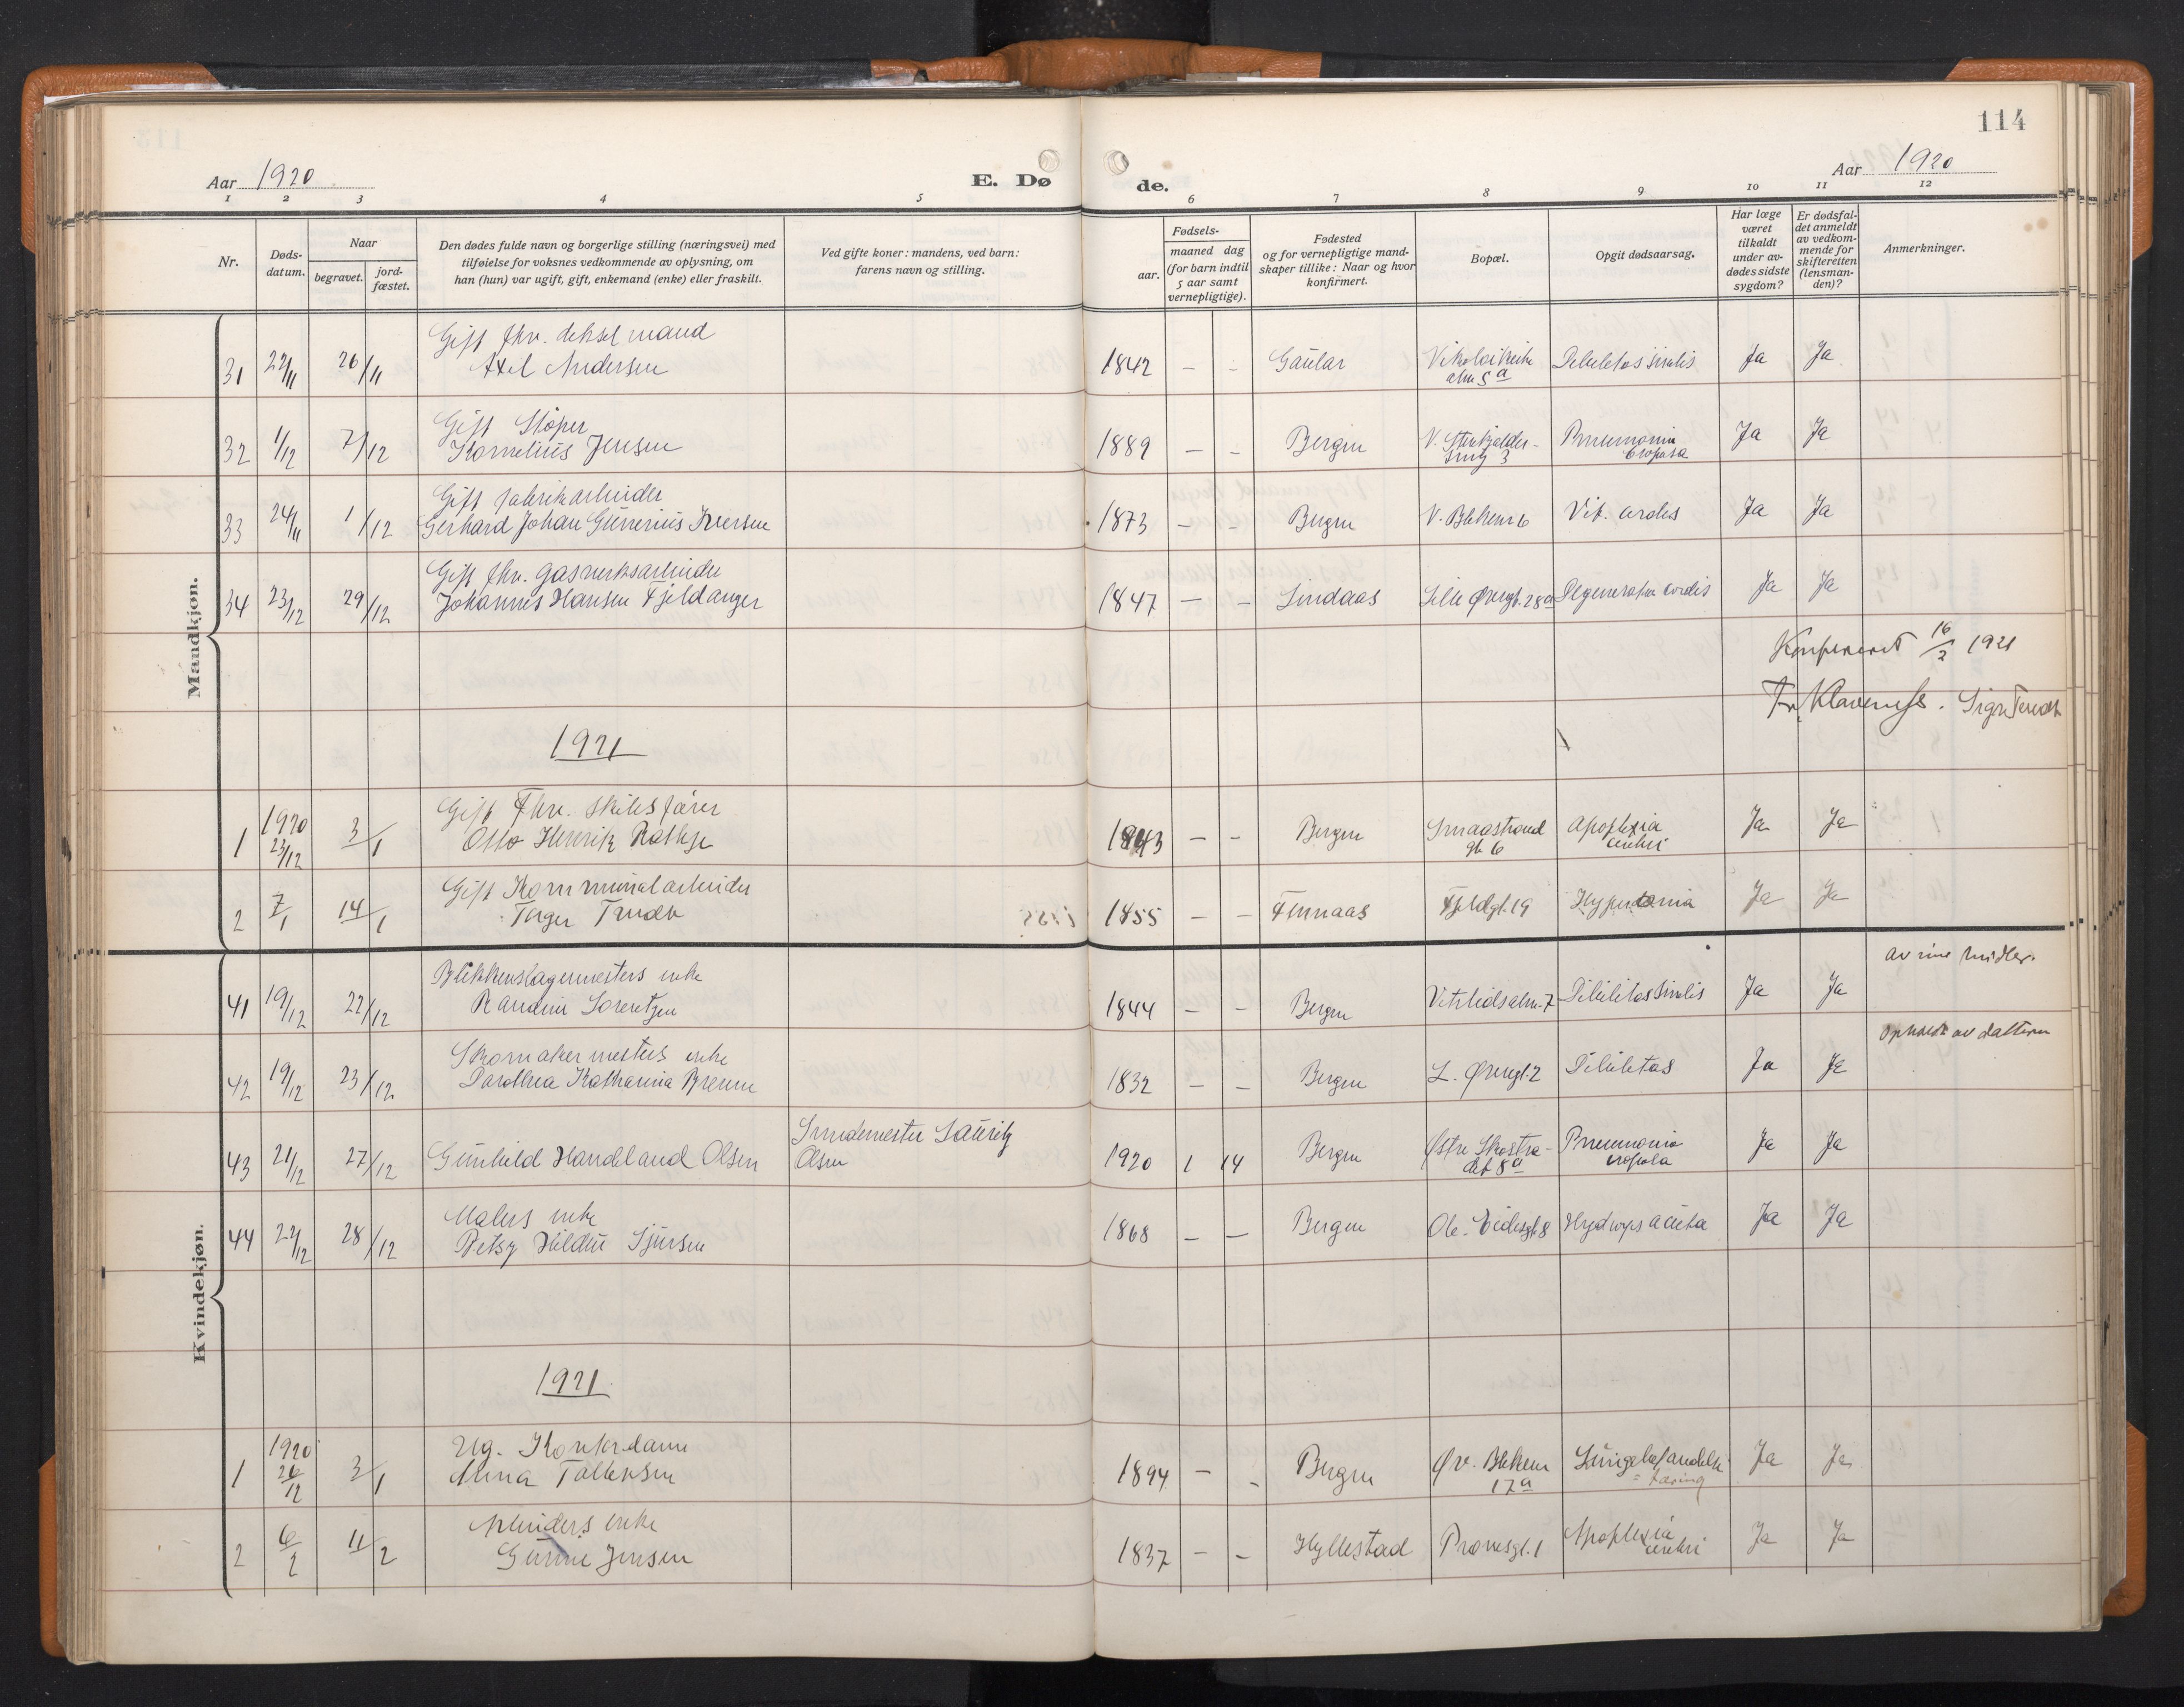 114
Aar 1920
E. Dø
de.
Aar 1920
1 2 3 4 5 6 7 8 9 10 11 12
Nr.
Døds-
datum.
Naar
begravet.
jord-
fæstet.
Den dødes fulde navn og borgerlige stilling (næringsvei) med
tilføielse for voksnes vedkommende av oplysning, om
han (hun) var ugift, gift, enkemand (enke) eller fraskilt.
Ved gifte koner: mandens, ved barn:
farens navn og stilling.
Fødsels-
aar.
maaned dag
(for barn indtil
5 aar samt
vernepligtige).
Fødested
og for vernepligtige mand-
skaper tillike: Naar og hvor
konfirmert.
Bopæl.
Opgit dødsaarsag.
Har læge
været
tilkaldt
under av-
dødes sidste
sygdom?
Er dødsfal-
det anmeldt
av vedkom-
mende for
skifteretten
(lensman-
den)?
Anmerkninger.
Mandkjøn.
Gift fhv.
31 22/11 26/11 Axel Andersen 1842 – – Gaular Nikolaikirke Debilitas senilis Ja Ja
alm 5a
Gift Støper
32 1/12 7/12 Kornelius Jensen 1889 – – Bergen V. Stenkjelder- Pneumonia Ja Ja
smug 3 croposa
Gift fabrikarbeider
33 24/11 1/12 Gerhard Johan Gunerius Iversen 1873 – – Bergen V. Blekevei 6 Vit. cordis Ja Ja
Gift fhv. gasverksarbeider
34 23/12 29/12 Johannes Hansen Fjeldanger 1847 – – Lindaas Lille Øvregt. 28a Degeneratio cordis Ja Ja
Konfereret 16/2 1921
Fr. Klaveness.
1921
Gift Fhv. skibsfører
1 1920 23/12 3/1 Otto Henrik Rathje 1843 – – Bergen Smaastrand Apoplexia Ja Ja
gt. 6 cerebri
Gift Kommunalarbeider
2 7/1 14/1 1855 – – Finnaas Fjeldgt. 19 Ja Ja
Kvindekjøn.
Blikkenslagermesters enke av sine midler.
41 19/12 22/12 Randine Lorentzen 1844 – – Bergen Vetrlidsalm. 7 Debilitas senilis Ja Ja
Skomakermesters enke Opholdt av datteren
42 19/12 23/12 Dorothea Katharina 1832 – – Bergen L. Øvregt. 2 Debilitas Ja Ja
Smedemester Lauritz
43 21/12 27/12 Gunhild Handeland Olsen Olsen 1920 1 14 Bergen Østre Skostræ- Pneumonia Ja Ja
det 8a croposa
Malers enke
44 22/12 28/12 Betsy Hildur Sjursen 1868 – – Bergen Ole Eidesgt. 8 Hydrops acuta Ja Ja
1921
Ug. Kontordame
1 1920 26/12 3/1 Anna Tollefsen 1894 – – Bergen Øv. Blekevei Lungebetændelse Ja Ja
17a = tæring
Arbeiders enke
2 6/2 11/2 Jensen 1837 – – Hyllestad Prahlsgt. 1 Apoplexia Ja Ja
cerebri